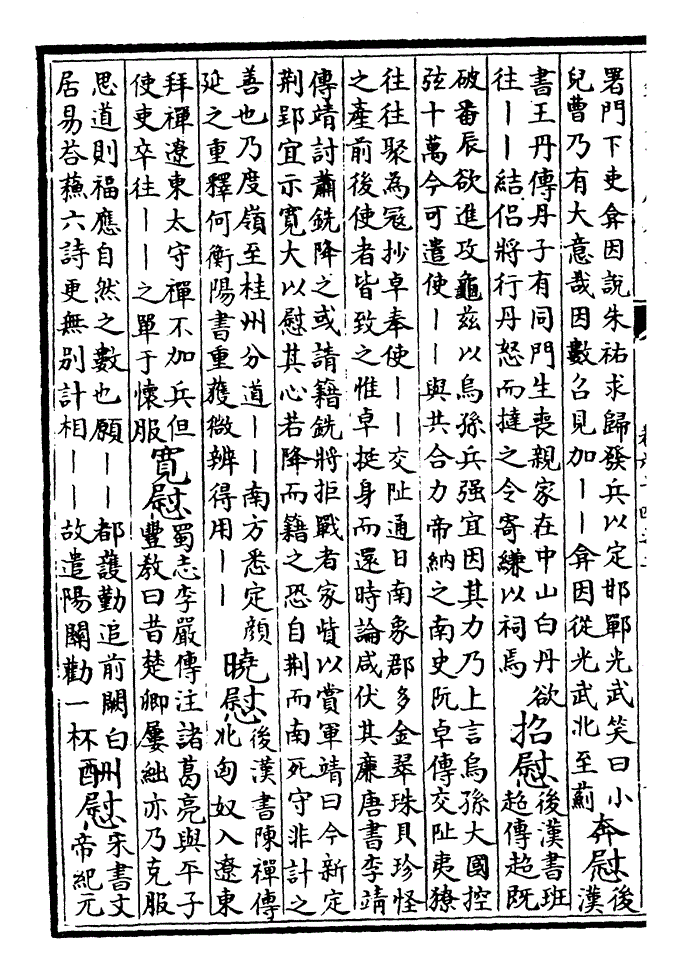 署門下吏弇因說朱祐求歸發兵以定邯鄲光武笑曰小
兒曹乃有大意哉因數召見加丨丨弇因從光武北至薊
奔慰
後
漢
書王丹傳丹子有同門生喪親家在中山白丹欲
往丨丨結侶將行丹怒而撻之令寄縑以祠焉
招慰
後漢書班
超傳超既
破番辰欲進攻龜茲以烏孫兵强宜因其力乃上言烏孫大國控
弦十萬今可遣使丨丨與共合力帝納之南史阮卓傳交阯夷獠
往往聚為冦抄卓奉使丨丨交阯通日南象郡多金翠珠貝珍怪
之產前後使者皆致之惟卓挺身而還時論咸伏其廉唐書李靖
傳靖討蕭銑降之或請籍銑將拒戰者家貲以賞軍靖曰今新定
荆郢宜示寛大以慰其心若降而籍之恐自荆而南死守非計之
善也乃度嶺至桂州分道丨丨南方悉定顔
延之重釋何衡陽書重獲微辨得用丨丨
曉慰
後漢書陳禪傳
北匈奴入遼東
拜禪遼東太守禪不加兵但
使吏卒往丨丨之單于懷服
寛慰
蜀志李嚴傳注諸葛亮與平子
豐教曰昔楚卿屢絀亦乃克服
思道則福應自然之數也願丨丨都護勤追前闕白
居易荅蘇六詩更無别計相丨丨故遣陽關勸一杯
酬慰
宋書文
帝紀元